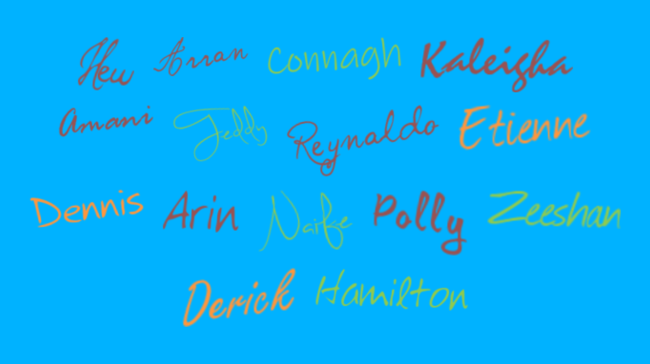 Hew Arran Connagh Kaleigha
Amani Teddy Reynaldo Etienne
Dennis Arin Naife Polly Zeeshan
Derick Hamilton